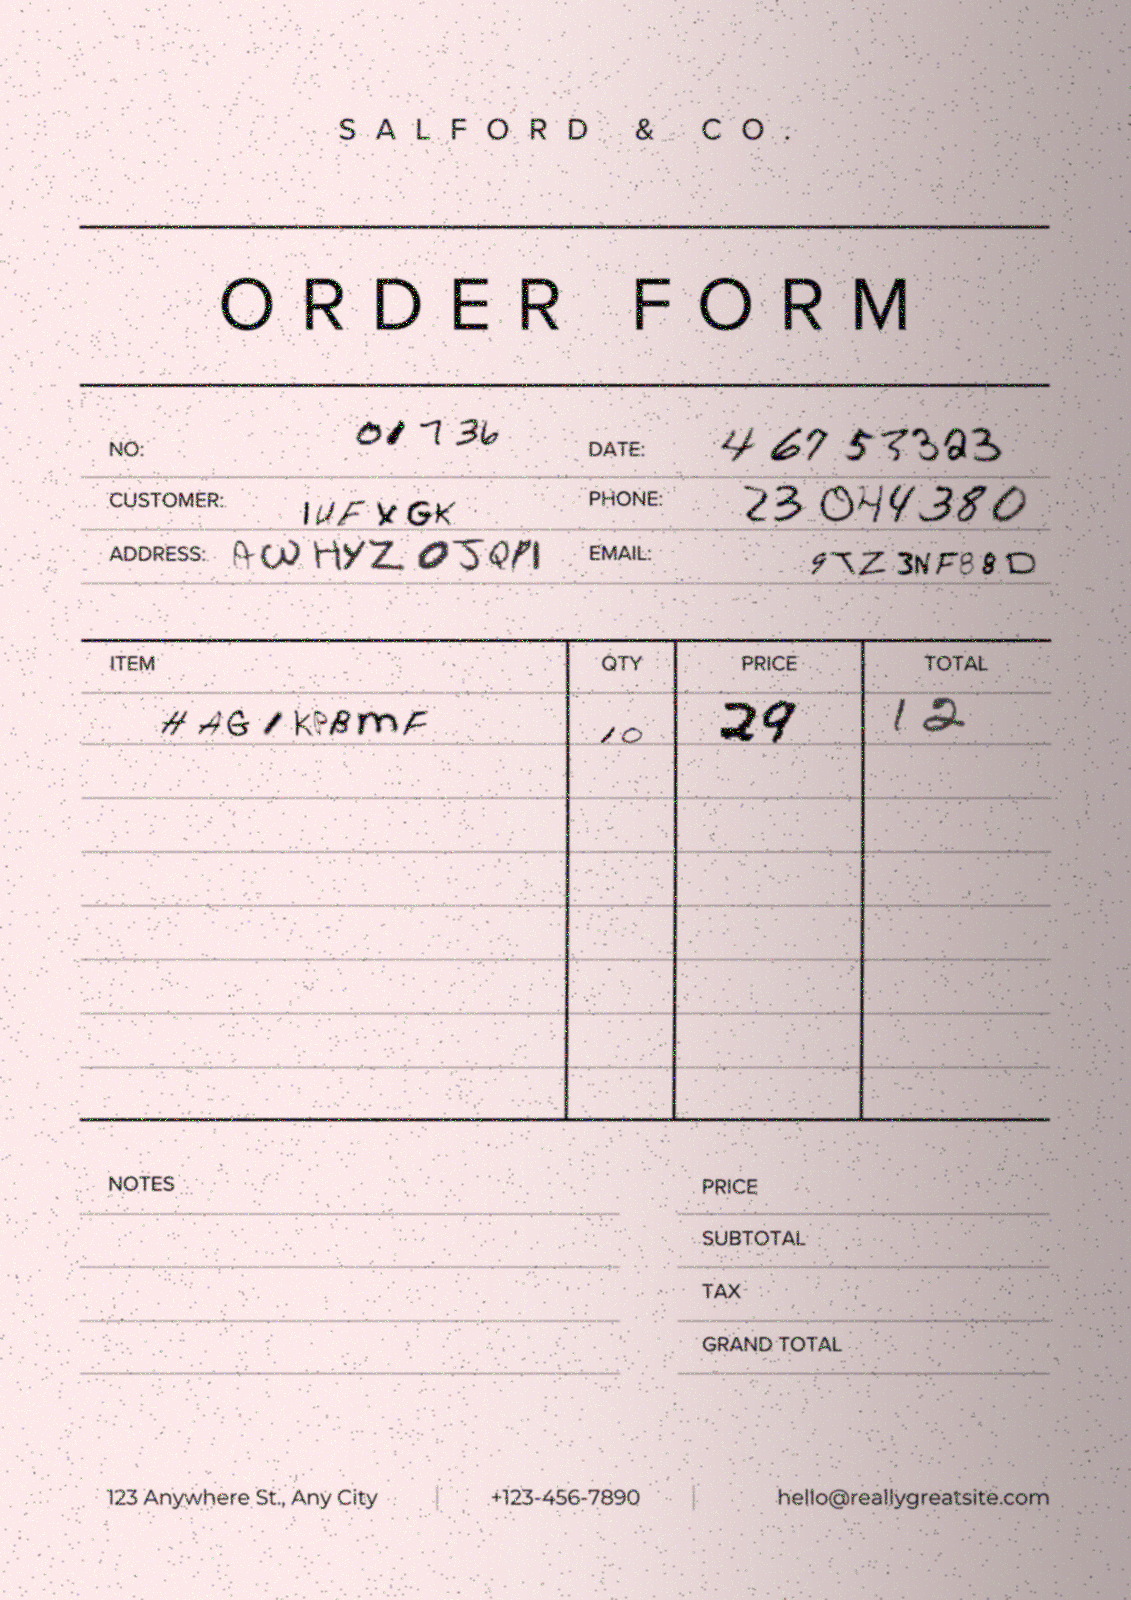 SALFORD & CO.
ORDER FORM
NO: 01736 DATE: 46753323
CUSTOMER: IUFXGK PHONE: 23044380
ADDRESS: AWHYZOJQPI EMAIL: 9TZ3NF88D
ITEM QTY PRICE TOTAL
HAG1KPBMF 10 29 12
NOTES PRICE
SUBTOTAL
TAX
GRAND TOTAL
123 Anywhere St., Any City | +123-456-7890 | hello@reallygreatsite.com